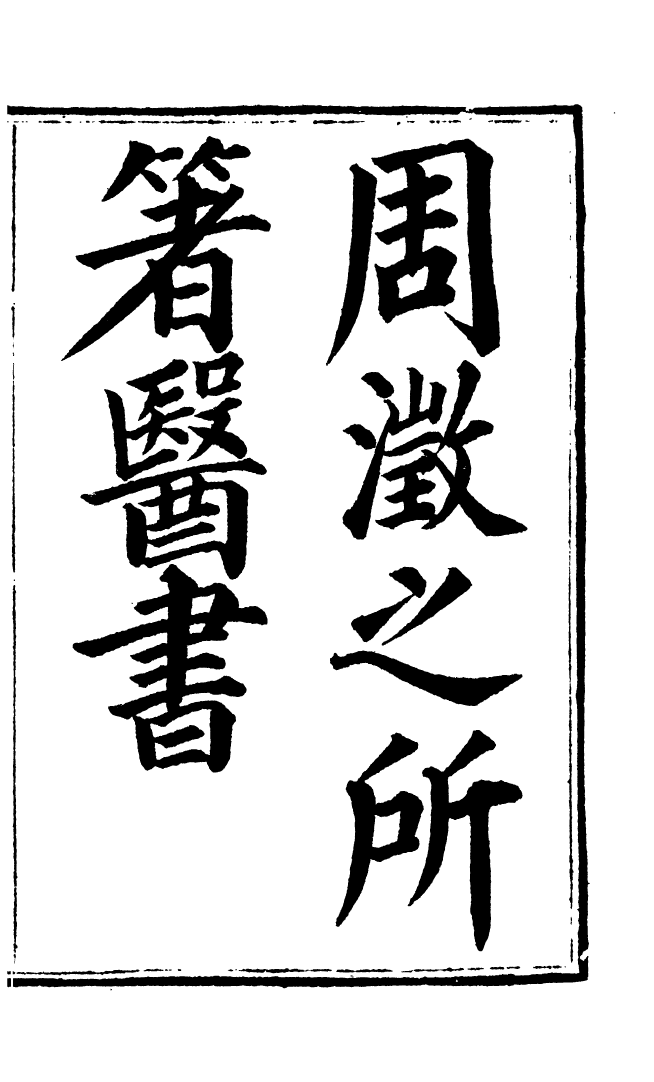 周澂之所
箸醫書